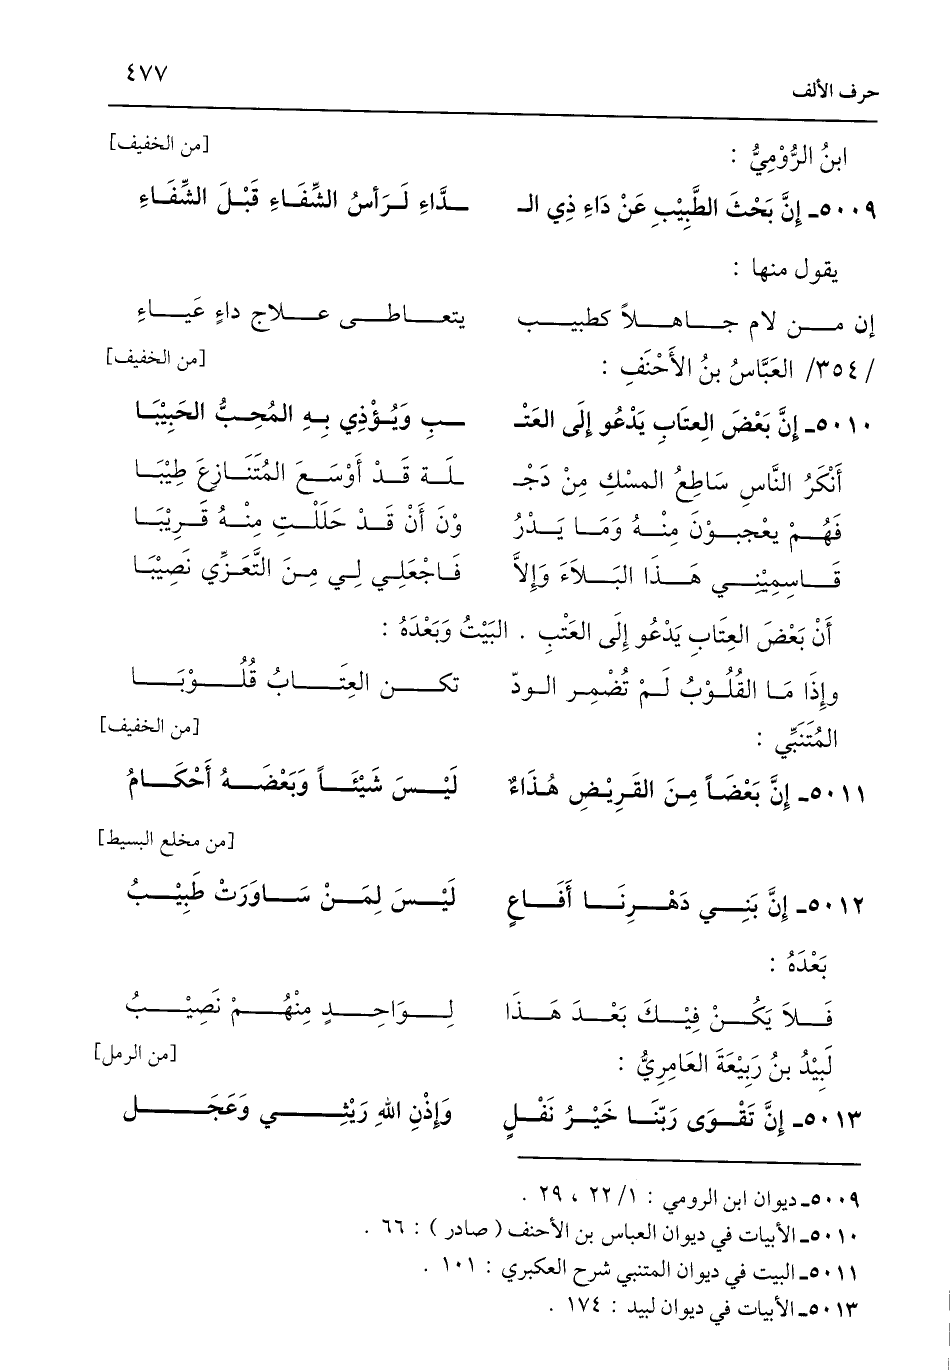 حرف الألف ٤٧٧
ابنُ الرُّوْمِيُّ : [من الخفيف]
٥٠٠٩ـ إِنَّ بَحْثَ الطَّبِيْبِ عَنْ دَاءِ ذِي الـ ـدَّاءِ لَرَأْسُ الشِّفَاءِ قَبْلَ الشِّفَاءِ
يقول منها :
إن من لام جاهلاً كطبيب يتعاطى علاج داءٍ عَياءِ
/٣٥٤/ العَبَّاسُ بنُ الأَحْنَفِ : [من الخفيف]
٥٠١٠ـ إِنَّ بَعْضَ العِتَابِ يَدْعُو إِلَى العَتْـ ـبِ وَيُؤْذِي بِهِ المُحِبُّ الحَبِيْبَا
أَنْكَرُ النَّاسِ سَاطِعُ المسْكِ مِنْ دَجْـ ـلَة قَدْ أَوْسَعَ المُتَنَازِعَ طِيْبَا
فَهُمْ يعْجبوْنَ مِنْهُ وَمَا يَدْرُ وْنَ أَنْ قَدْ حَلَلْتِ مِنْهُ قَرِيْبَا
قَاسِمِيْنِي هَذَا البَلاَءَ وَإِلاَّ فَاجْعَلِي لِي مِنَ التَّعَزِّي نَصِيْبَا
أَنْ بَعْضَ العِتَابِ يَدْعُو إِلَى العَتْبِ . البَيْتُ وَبَعْدَهُ :
وإِذَا مَا القُلُوْبُ لَمْ تُضْمِرِ الودّ تكن العِتَابُ قُلُوْبَا
المُتَنَبِّي : [من الخفيف]
٥٠١١ـ إِنَّ بَعْضَاً مِنَ القَرِيْضِ هُذَاءٌ لَيْسَ شَيْئَاً وَبَعْضَهُ أَحْكَامُ
[من مخلع البسيط]
٥٠١٢ـ إِنَّ بَنِي دَهْرِنَا أَفَاعٍ لَيْسَ لِمَنْ سَاوَرَتْ طَبِيْبُ
بَعْدَهُ :
فَلاَ يَكُنْ فِيْكَ بَعْدَ هَذَا لِوَاحِدٍ مِنْهُمْ نَصِيْبُ
لَبِيْدُ بنُ رَبِيْعَةَ العَامِرِيُّ : [من الرمل]
٥٠١٣ـ إِنَّ تَقْوَى رَبّنَا خَيْرُ نَفْلٍ وَإِذْنِ اللهِ رَيْثِي وَعَجَل
٥٠٠٩ـ ديوان ابن الرومي : ١/ ٢٢ ، ٢٩ .
٥٠١٠ـ الأبيات في ديوان العباس بن الأحنف ( صادر ) : ٦٦ .
٥٠١١ـ البيت في ديوان المتنبي شرح العكبري : ١٠١ .
٥٠١٣ـ الأبيات في ديوان لبيد : ١٧٤ .